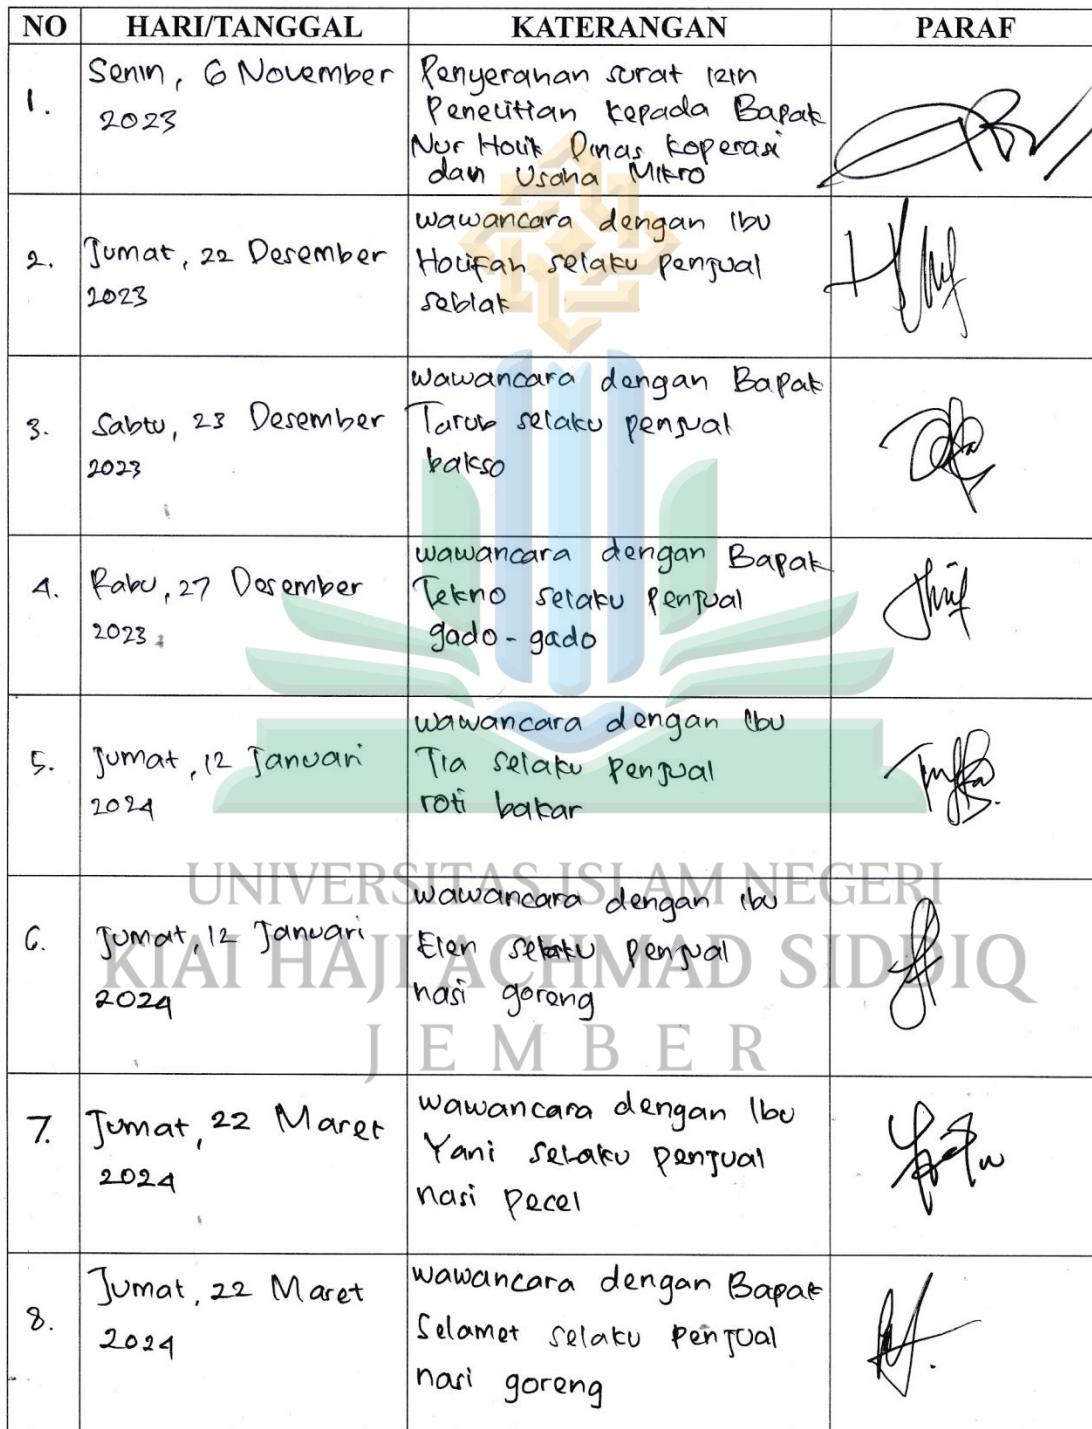 NO HARI/TANGGAL KATERANGAN PARAF
1. Senin, 6 November 2023
Penyerahan surat izin
Penelitian kepada Bapak
Nur Holik Dinas Koperasi
dan Usaha Mikro
2. Jumat, 22 Desember
2023
wawancara dengan Ibu
Holifah selaku penjual
seblak
3. Sabtu, 23 Desember
2023
wawancara dengan Bapak
Tarub selaku penjual
bakso
4. Rabu, 27 Desember
2023
wawancara dengan Bapak
Tekno selaku Penjual
gado-gado
5. Jumat, 12 Januari
2024
wawancara dengan Ibu
Tia selaku Penjual
roti bakar
UNIVERSITAS ISLAM NEGERI
6. Jumat, 12 Januari
2024
wawancara dengan Ibu
Elen selaku Penjual
nasi goreng
KIAI HAJI ACHMAD SIDDIQ
JEMBER
7. Jumat, 22 Maret
2024
wawancara dengan Ibu
Yani selaku penjual
nasi pecel
8. Jumat, 22 Maret
2024
wawancara dengan Bapak
Selamet selaku Penjual
nasi goreng